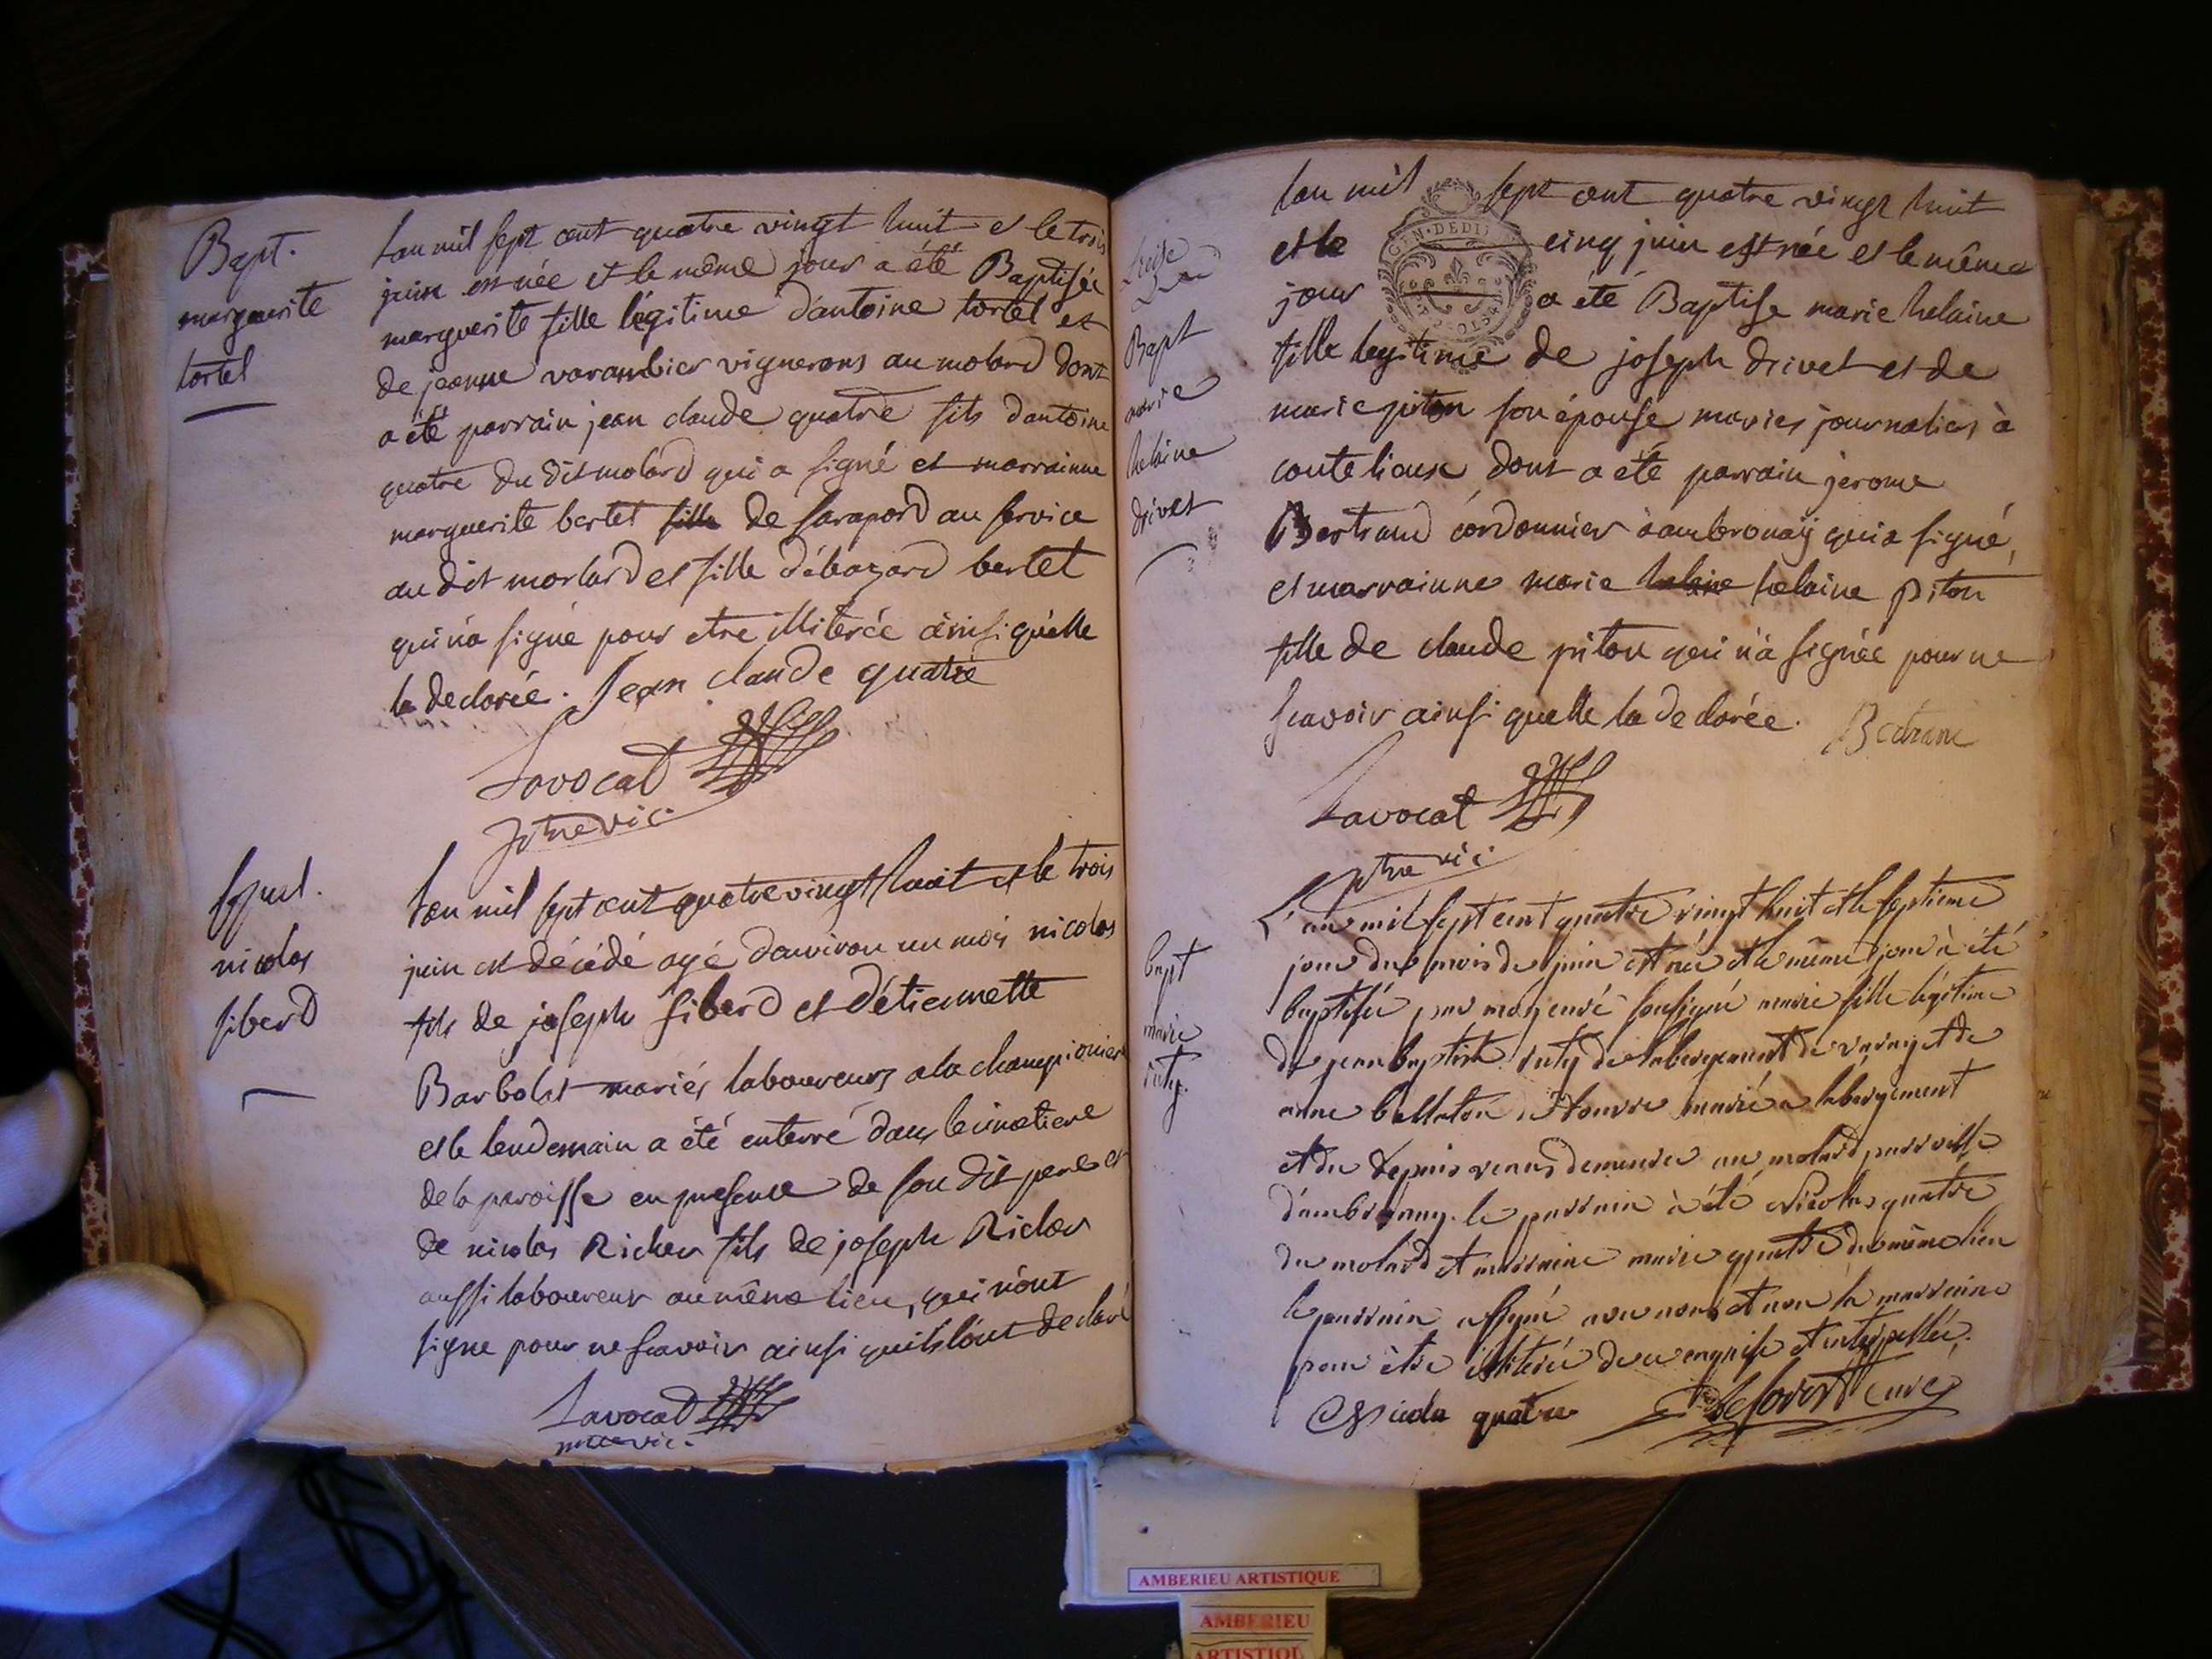 Bapt.
marguerite
tortel
Lan mil sept cent quatre vingt huit et le trois
juin est née et le même jour a été Baptisée
marguerite fille légitime d'antoine tortel et
de jeanne varambier vignerons au molard dont
a été parrain jean claude quatre fils dantoine
quatre du dit molard qui a signé et marrainne
marguerite bertet fille de au service
au dit morlard et fille bertet
qui n'a signé pour etre illiterée ainsi qu'elle
la declarée. Jean claude quatre
Lavocat
ptre vic.
sepul.
nicolas
siberd
Lan mil sept cent quatre vingt huit et le trois
juin est décédé agé d'environ un mois nicolas
fils de joseph siberd et d'étiennette
Barbolat mariés laboureurs a la championiere
et le lendemain a été enterré dans le cimetiere
de la paroisse en presence de son dit pere et
de nicolas Richer fils de joseph Richer
aussi laboureur au même lieu, qui n'ont
signe pour ne scavoir ainsi quils l'ont declaré
Lavocat
ptre vic.
Bapt
marie
helaine
drivet
lan mil sept cent quatre vingt huit
et le cinq juin est née et le même
jour a eté Baptise marie helaine
fille legitime de joseph drivet et de
marie piton son épouse mariés journaliers à
coutelieux dont a été parrain jerome
Bertrand cordonnier à ambronaÿ qui a signé,
et marrainne marie helaine helaine piton
fille de claude piton qui n'a signée pour ne
scavoir ainsi quelle la declarée. Bertrane
Lavocat
ptre vic:
bapt
marie
ruty.
L'an mil sept cent quatre vingt huit et le septieme
jour du mois de juin est née et le même jour à été
baptisée par moy curé soussigné marie fille légitime
de jean baptiste ruty de labergement de varey et de
anne ballaton mariés a labergement
et du depuis venus demeurer au molard parroisse
d'ambronay. le parrain à été Nicolas quatre
du molard et marraine marie quatre du même lieu
le parrain a signé avec nous et non la marraine
pour être illiterée de ce enquise et interpellée.
Nicola quatre curé
AMBERIEU ARTISTIQUE
AMBERIEU
ARTISTIQU